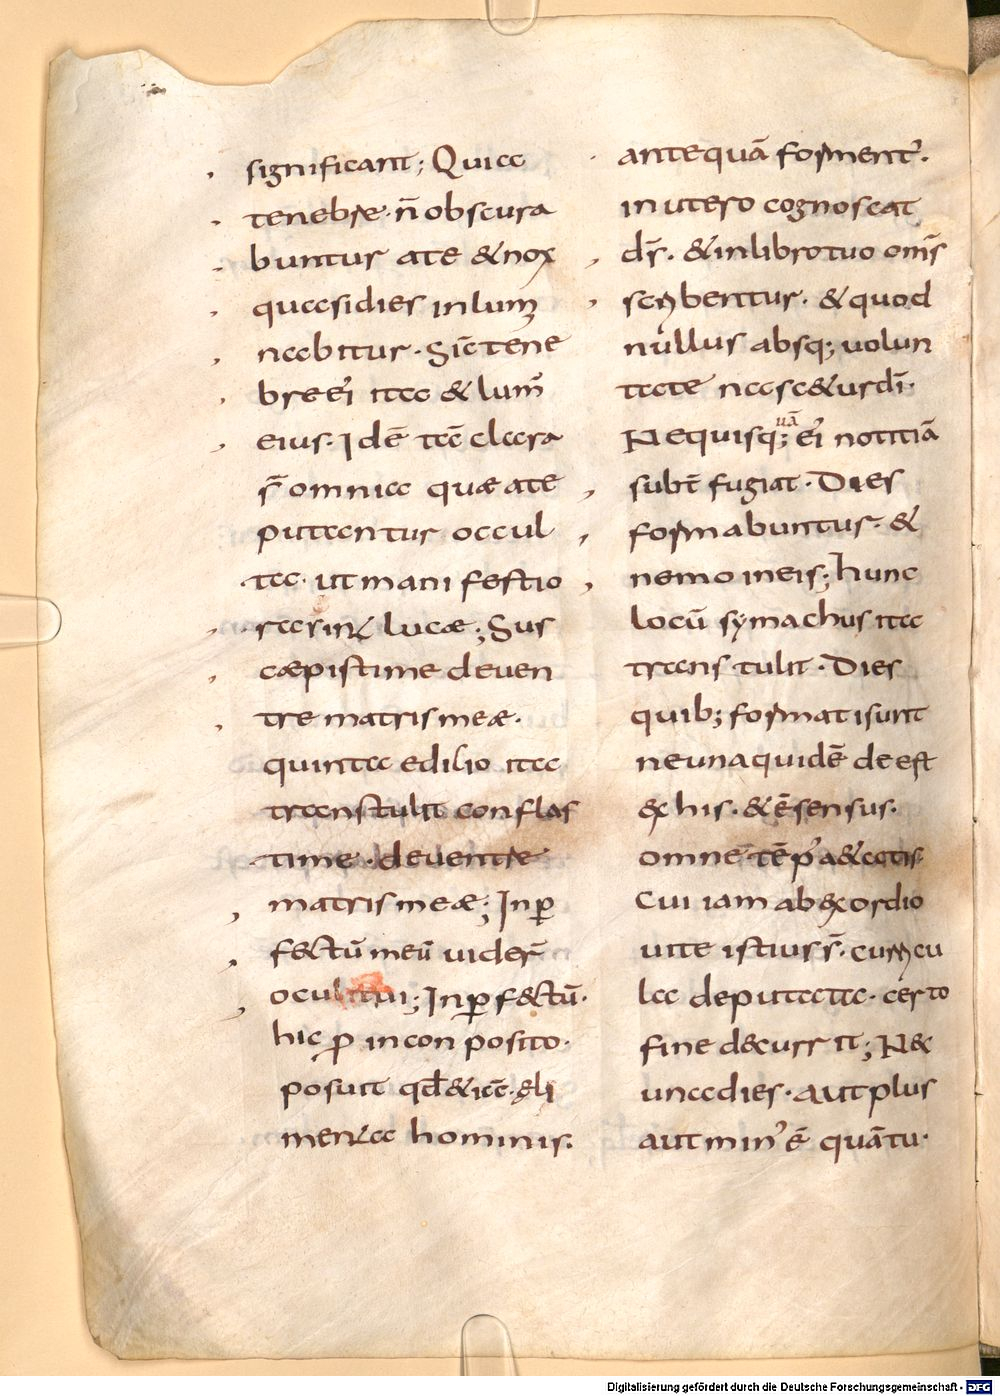 significant; Quia
tenebrae· n̄ obscura
buntur a te & nox
quasi dies in lum̅
nabitur· Sic̄ tene
brae ei᾿ ita & lum̄
eius· Idē tā clara
s̄ omnia quæ a te
putantur occul
ta· ut manifestio
ra lucæ; Sus
cæpisti me de ven
tre matris meæ·
quinta edilio ita
transtulit conflas
ti me· de ventre
matris meæ; Inꝑ
f&ctū meū uider̄
oculi tui; Inꝑf&ctū·
hic ꝓ inconposito·
posuit qd̄
hominis·
antequā forment᾿·
in utero cognoscat
ds̄· & in libro tuo om̄s
scribentur· & quod
nullus absq; volun
tate nascatur dī·
Nequisquā; ei᾿ notitiā
subt̄ fugiat· Dies
formabuntur· &
nemo in eis; hunc
locū symachus ita
trans tulit· Dies
quib; formati sunt
ne una quidē deest
ex his· & ē sensus·
omne tēp᾿ a&atis
Cui iam ab exordio
vite istius s̄· curricu
la deputata· certo
fine decurrit; Nec
una dies· aut plus
aut min᾿ ē quātu·
Digitalisierung gefördert durch die Deutsche Forschungsgemeinschaft - DFG